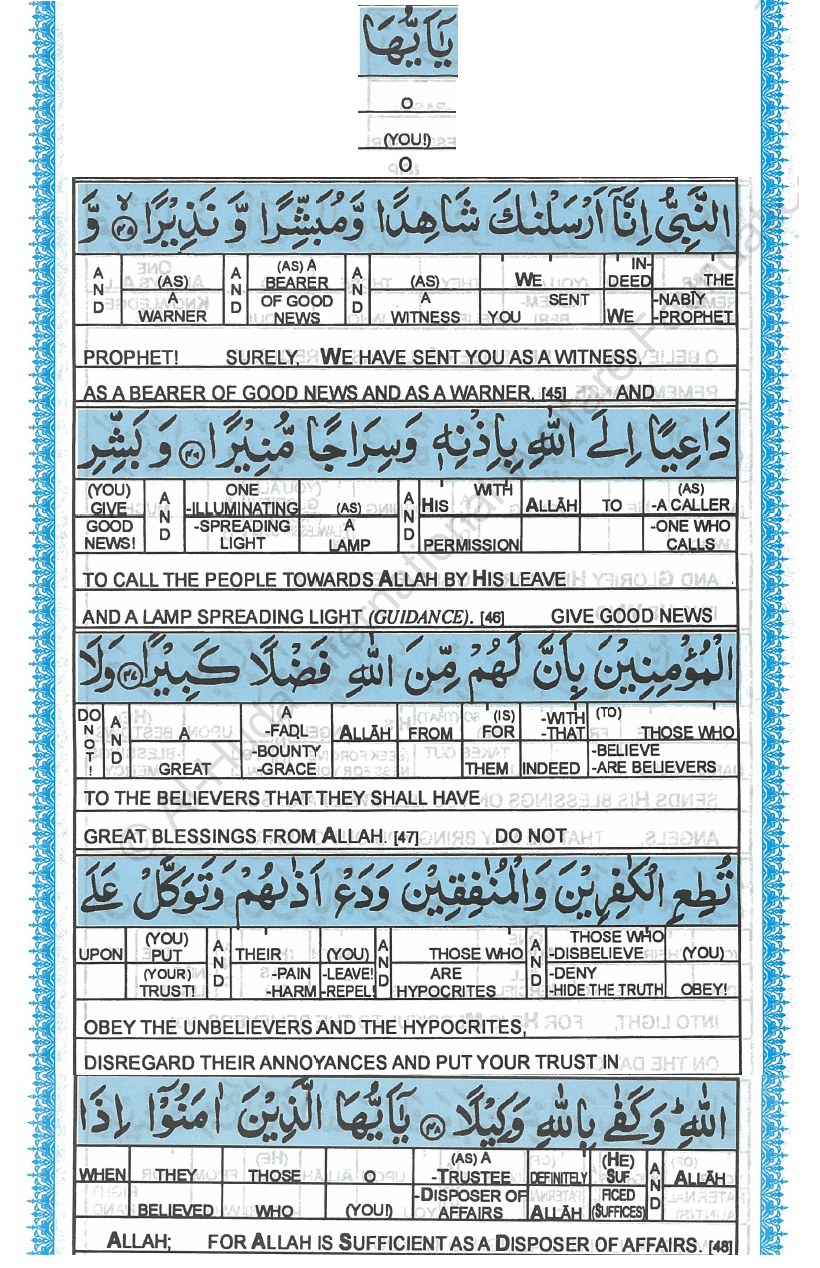 يَٰٓأَيُّهَا
O
(YOU!)
O
النَّبِيُّ اِنَّآ اَرْسَلْنٰكَ شَاهِدًا وَّمُبَشِّرًا وَّ نَذِيْرًا ﴿٤٥﴾ وَّ
AND (AS) AND (AS) A AND (AS) WE IN-DEED THE
A WARNER BEARER OF GOOD NEWS A WITNESS SENT YOU WE -NABĪY -PROPHET
PROPHET! SURELY, WE HAVE SENT YOU AS A WITNESS,
AS A BEARER OF GOOD NEWS AND AS A WARNER. [45] AND
دَاعِيًا اِلَى اللّٰهِ بِاِذْنِهٖ وَسِرَاجًا مُّنِيْرًا ﴿٤٦﴾ وَ بَشِّرِ
(YOU) GIVE AND ONE -ILLUMINATING (AS) AND WITH HIS ALLĀH TO (AS) -A CALLER
GOOD NEWS! -SPREADING LIGHT A LAMP PERMISSION -ONE WHO CALLS
TO CALL THE PEOPLE TOWARDS ALLAH BY HIS LEAVE
AND A LAMP SPREADING LIGHT (GUIDANCE). [46] GIVE GOOD NEWS
الْمُؤْمِنِيْنَ بِاَنَّ لَهُمْ مِّنَ اللّٰهِ فَضْلًا كَبِيْرًا ﴿٤٧﴾ وَلَا
DO NOT! AND A A -FADL ALLĀH FROM (IS) FOR -WITH -THAT (TO) THOSE WHO
GREAT -BOUNTY -GRACE THEM INDEED -BELIEVE -ARE BELIEVERS
TO THE BELIEVERS THAT THEY SHALL HAVE
GREAT BLESSINGS FROM ALLAH. [47] DO NOT
تُطِعِ الْكٰفِرِيْنَ وَالْمُنٰفِقِيْنَ وَدَعْ اَذٰىهُمْ وَتَوَكَّلْ عَلَى
UPON (YOU) PUT AND THEIR (YOU) AND THOSE WHO AND THOSE WHO -DISBELIEVE (YOU)
(YOUR) TRUST! -PAIN -HARM -LEAVE! -REPEL! ARE HYPOCRITES -DENY -HIDE THE TRUTH OBEY!
OBEY THE UNBELIEVERS AND THE HYPOCRITES,
DISREGARD THEIR ANNOYANCES AND PUT YOUR TRUST IN
اللّٰهِ ؕ وَكَفٰى بِاللّٰهِ وَكِيْلًا ﴿٤٨﴾ يٰٓاَيُّهَا الَّذِيْنَ اٰمَنُوْٓا اِذَا
WHEN THEY THOSE O (AS) A -TRUSTEE DEFINITELY (HE) SUF AND ALLĀH
BELIEVED WHO (YOU!) -DISPOSER OF AFFAIRS ALLĀH FICED (SUFFICES)
ALLAH; FOR ALLAH IS SUFFICIENT AS A DISPOSER OF AFFAIRS. [48]